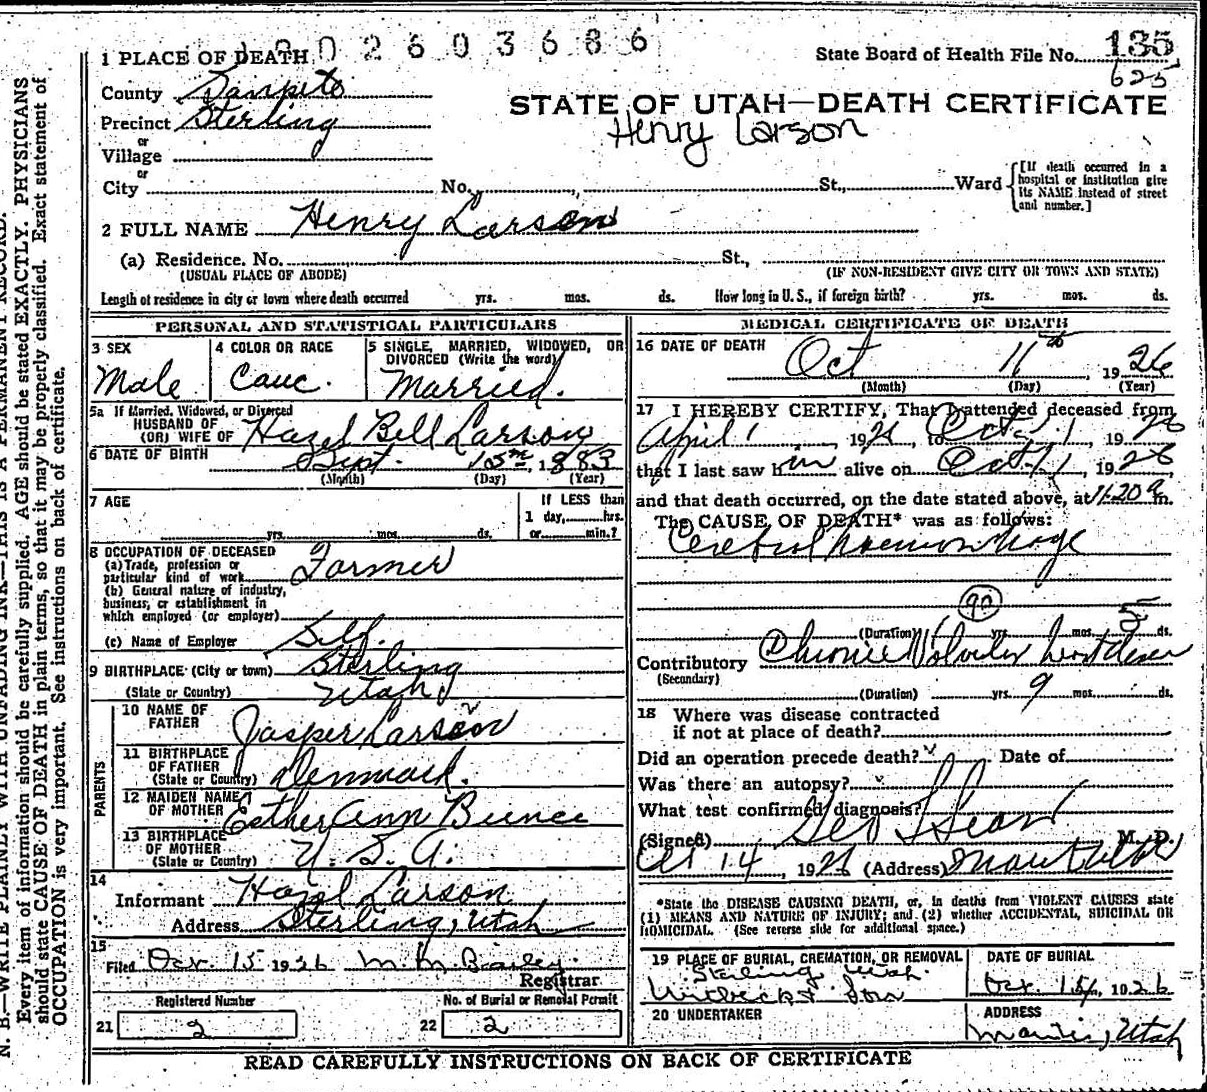 1 PLACE OF DEATH
State Board of Health File No. 135
625
County Sanpete
STATE OF UTAH—DEATH CERTIFICATE
Precinct Sterling
Henry Larson
or
Village
or
City No. St., Ward
[If death occurred in a
hospital or institution give
its NAME instead of street
and number.]
2 FULL NAME Henry Larson
(a) Residence. No. St.,
(USUAL PLACE OF ABODE) (IF NON-RESIDENT GIVE CITY OR TOWN AND STATE)
Length of residence in city or town where death occurred yrs. mos. ds. How long in U. S., if foreign birth? yrs. mos. ds.
PERSONAL AND STATISTICAL PARTICULARS
3 SEX
Male
4 COLOR OR RACE
Cauc.
5 SINGLE, MARRIED, WIDOWED, OR
DIVORCED (Write the word)
Married.
5a If Married, Widowed, or Divorced
HUSBAND OF
(OR) WIFE OF Hazel Bell Larson
6 DATE OF BIRTH Sept. 15th 1883
(Month) (Day) (Year)
7 AGE
yrs. mos. ds.
If LESS than
1 day, hrs.
or min.?
8 OCCUPATION OF DECEASED
(a) Trade, profession or
particular kind of work Farmer
(b) General nature of industry,
business, or establishment in
which employed (or employer)
(c) Name of Employer Self.
9 BIRTHPLACE (City or town) Sterling
(State or Country) Utah
PARENTS
10 NAME OF
FATHER Jasper Larson
11 BIRTHPLACE
OF FATHER
(State or Country) Denmark.
12 MAIDEN NAME
OF MOTHER Esther Ann Bunce
13 BIRTHPLACE
OF MOTHER
(State or Country) U. S. A.
14
Informant Hazel Larson
Address Sterling, Utah
15
Filed Oct. 15 1926 M. M. Bailey.
Registrar
Registered Number
21 2
No. of Burial or Removal Permit
22 2
MEDICAL CERTIFICATE OF DEATH
16 DATE OF DEATH
Oct 11th, 1926
(Month) (Day) (Year)
17 I HEREBY CERTIFY, That I attended deceased from
April 1 1926, to Oct. 11 1926
that I last saw him alive on Oct. 11 1926
and that death occurred, on the date stated above, at 11.20 a m.
The CAUSE OF DEATH* was as follows:
Cerebral haemorrhage
90
(Duration) yrs. mos. 5 ds.
Contributory Chronic Valvular heart disease
(Secondary)
(Duration) yrs. 9 mos. ds.
18 Where was disease contracted
if not at place of death?
Did an operation precede death? Date of
Was there an autopsy?
What test confirmed diagnosis?
(Signed) M. D.
Oct 14, 1926 (Address) Manti Utah
*State the DISEASE CAUSING DEATH, or, in deaths from VIOLENT CAUSES state
(1) MEANS AND NATURE OF INJURY; and (2) whether ACCIDENTAL, SUICIDAL OR
HOMICIDAL. (See reverse side for additional space.)
19 PLACE OF BURIAL, CREMATION, OR REMOVAL
Sterling Utah.
DATE OF BURIAL
Oct. 15, 1926
Witbeck & Son
20 UNDERTAKER
ADDRESS
Manti, Utah
READ CAREFULLY INSTRUCTIONS ON BACK OF CERTIFICATE
N. B.—WRITE PLAINLY WITH UNFADING INK—THIS IS A PERMANENT RECORD.
Every item of information should be carefully supplied. AGE should be stated EXACTLY. PHYSICIANS
should state CAUSE OF DEATH in plain terms, so that it may be properly classified. Exact statement of
OCCUPATION is very important. See instructions on back of certificate.